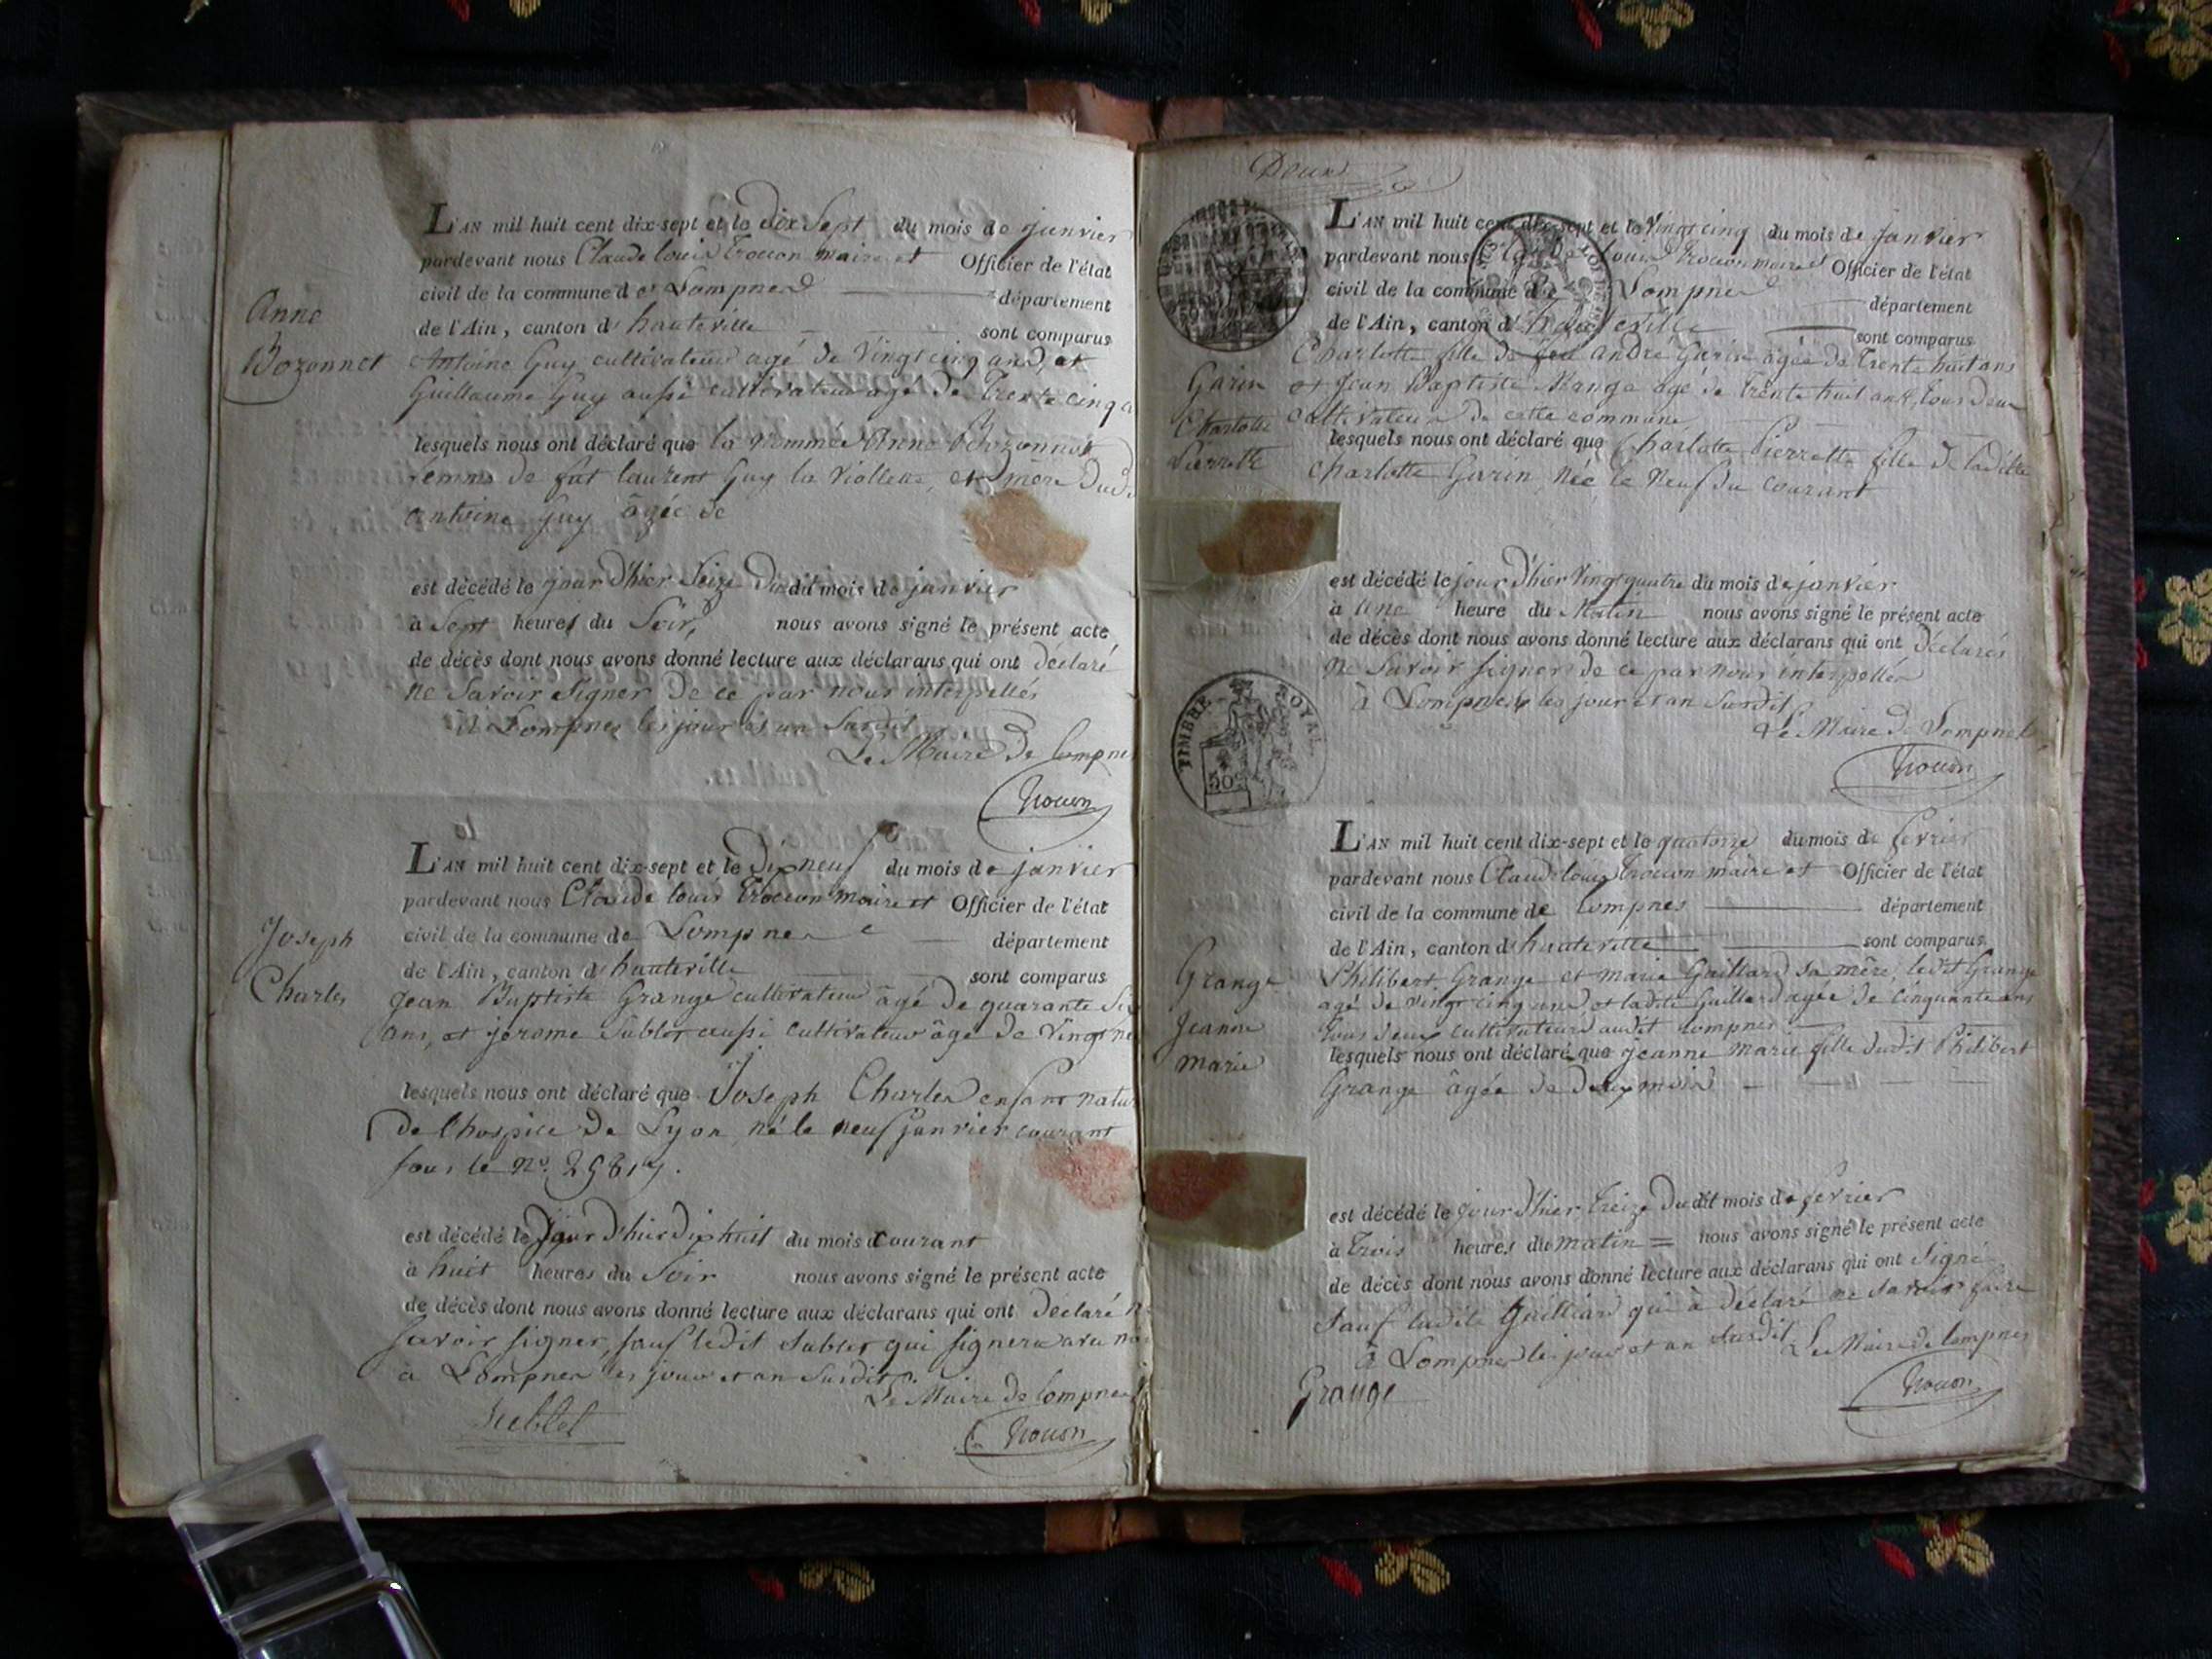 Anne
Bozonnet
L'AN mil huit cent dix-sept et le dix Sept du mois de janvier
pardevant nous Claude louis Trocon maire et Officier de l'état
civil de la commune de Lompnes département
de l'Ain, canton d' hauteville sont comparus
Antoine Guy cultivateur agé de Vingt cinq ans, et
Guillaume Guy aussi cultivateur agé de Trente cinq
lesquels nous ont déclaré que la Nommée Anne Bozonnet
femme de fut laurent Guy la Viollette, et mère dud
antoine Guy âgée de
est décédé le jour d'hier Seize dudit mois de janvier
à Sept heures du Soir, nous avons signé le présent acte
de décès dont nous avons donné lecture aux déclarans qui ont déclaré
ne Savoir Signer de ce par nous interpellés
à Lompnes les jour et an Susdit
Le Maire de lompnes
Trocon
Joseph
Charles
L'AN mil huit cent dix-sept et le dix neuf du mois de janvier
pardevant nous Claude louis Trocon maire et Officier de l'état
civil de la commune de Lompnes département
de l'Ain, canton d' hauteville sont comparus
Jean Baptiste Grange cultivateur âgé de quarante
ans, et jerome Sublet aussi cultivateur âgé de Vingt
lesquels nous ont déclaré que Joseph Charles enfant natur
de l'hospice de Lyon né le neuf janvier courant
sous le n°.
est décédé le jour d'hier dix huit du mois courant
à huit heures du Soir nous avons signé le présent acte
de décès dont nous avons donné lecture aux déclarans qui ont déclaré
Savoir signer, sauf ledit Sublet qui signera avec
à Lompnes les jour et an Susdit.
Le Maire de lompnes
Sublet
Trocon
Deux
L'AN mil huit cent dix-sept et le Vingt cinq du mois de janvier
pardevant nous louis Trocon maire et Officier de l'état
civil de la commune de Lompnes département
de l'Ain, canton d' hauteville sont comparus
Garin
Charlotte
Pierrette
Charlotte fille de feu andré Garin âgée de trente huit ans
et Jean Baptiste Mange agé de trente huit ans, tous deux
cultivateurs de cette commune
lesquels nous ont déclaré que Charlotte Pierrette fille de ladite
Charlotte Garin, Née le Neuf du courant
est décédé le jour d'hier Vingt quatre du mois de janvier
à une heure du Matin nous avons signé le présent acte
de décès dont nous avons donné lecture aux déclarans qui ont déclarés
ne Savoir signer de ce par nous interpellés
à Lompnes les jour et an Susdit
Le Maire de Lompnes
Trocon
TIMBRE ROYAL
50
L'AN mil huit cent dix-sept et le quatorze du mois de fevrier
pardevant nous Claude louis Trocon maire et Officier de l'état
civil de la commune de lompnes département
de l'Ain, canton d' hauteville sont comparus
Grange
Jeanne
Marie
Philibert Grange et marie Guillard sa mère, ledit Grange
agé de vingt cinq ans, et ladite Guillard agée de cinquante ans
tous deux cultivateurs audit lompnes
lesquels nous ont déclaré que jeanne marie fille dudit Philibert
Grange âgée de deux mois
est décédé le jour d'hier treize dudit mois de fevrier
à trois heures du matin = nous avons signé le présent acte
de décès dont nous avons donné lecture aux déclarans qui ont Signé
Sauf ladite Guilliard qui à déclaré ne Savoir faire
à Lompnes les jour et an Susdit Le Maire de lompnes
Grange
Trocon